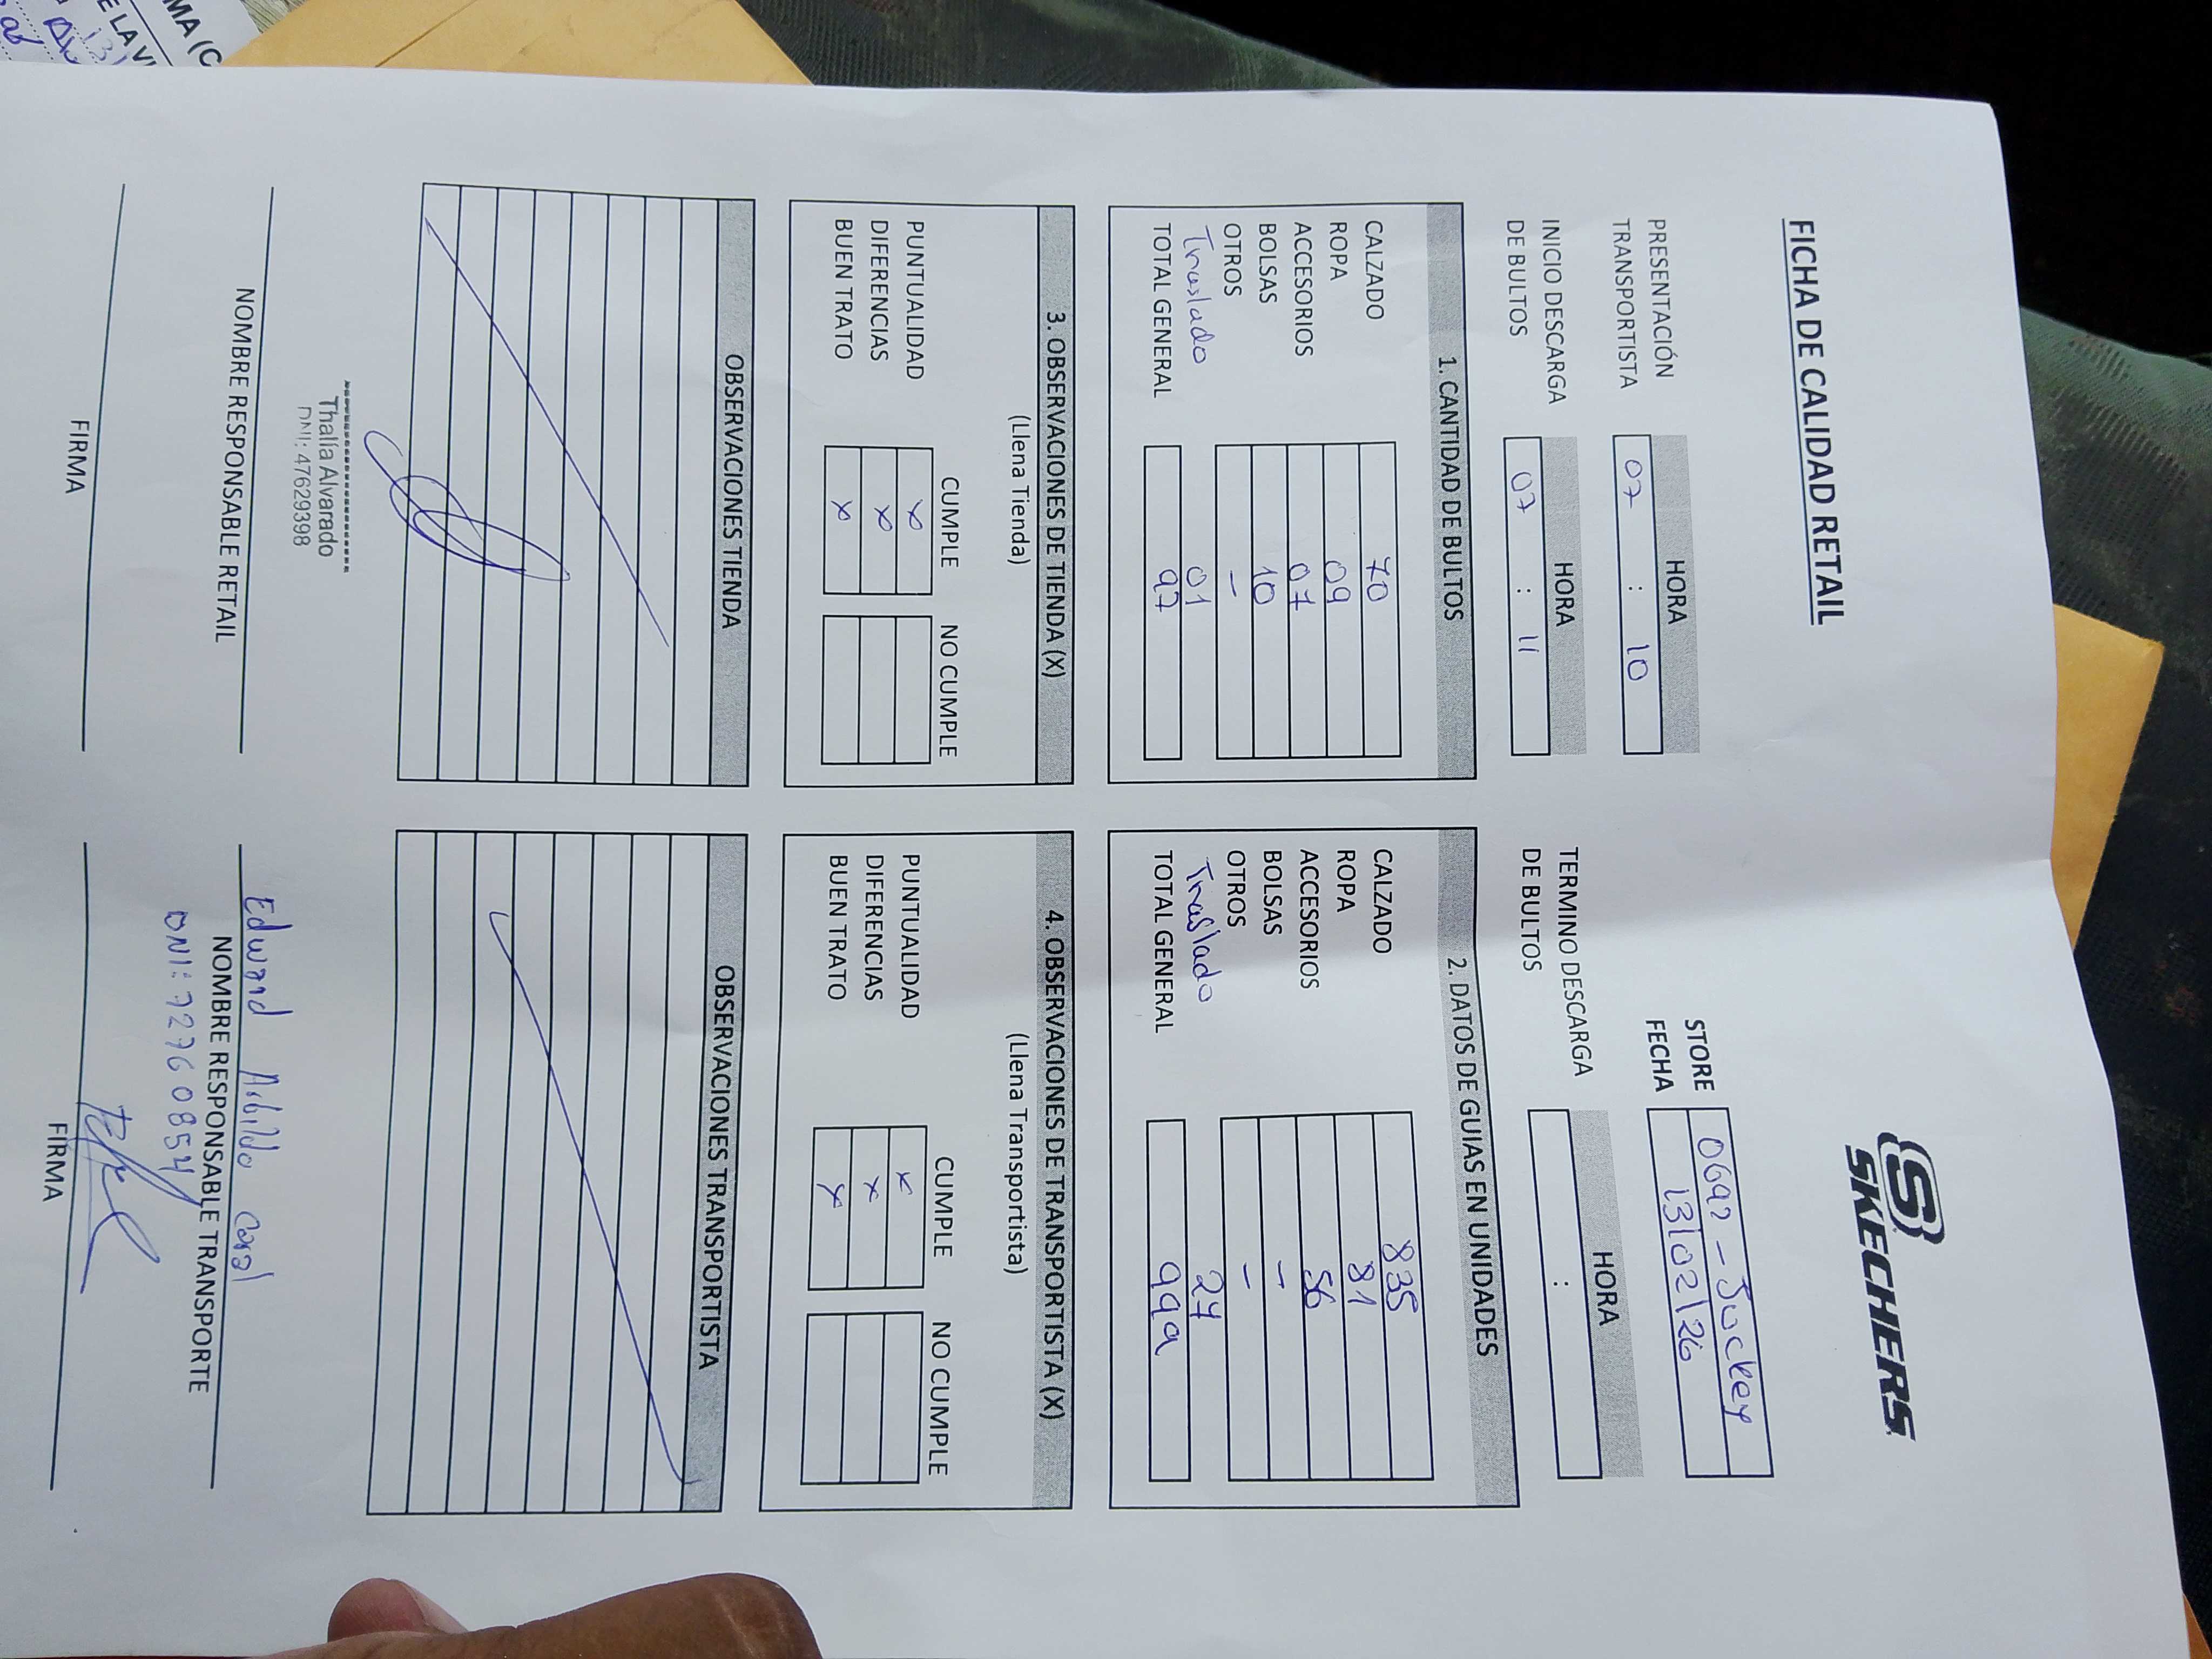 FICHA DE CALIDAD RETAIL
SKECHERS
STORE 0692 - Jockey
FECHA 13/02/26
HORA
PRESENTACIÓN
TRANSPORTISTA 07 : 10
HORA
INICIO DESCARGA
DE BULTOS 07 : 11
HORA
TERMINO DESCARGA
DE BULTOS :
1. CANTIDAD DE BULTOS
CALZADO 70
ROPA 09
ACCESORIOS 07
BOLSAS 10
OTROS -
Traslado 01
TOTAL GENERAL 97
2. DATOS DE GUIAS EN UNIDADES
CALZADO 835
ROPA 81
ACCESORIOS 56
BOLSAS -
OTROS -
Traslado 27
TOTAL GENERAL 999
3. OBSERVACIONES DE TIENDA (X)
(Llena Tienda)
CUMPLE NO CUMPLE
PUNTUALIDAD x
DIFERENCIAS x
BUEN TRATO x
4. OBSERVACIONES DE TRANSPORTISTA (X)
(Llena Transportista)
CUMPLE NO CUMPLE
PUNTUALIDAD x
DIFERENCIAS x
BUEN TRATO x
OBSERVACIONES TIENDA
OBSERVACIONES TRANSPORTISTA
Thalía Alvarado
DNI: 47629398
NOMBRE RESPONSABLE RETAIL
FIRMA
Edward
NOMBRE RESPONSABLE TRANSPORTE
DNI: 72760854
FIRMA